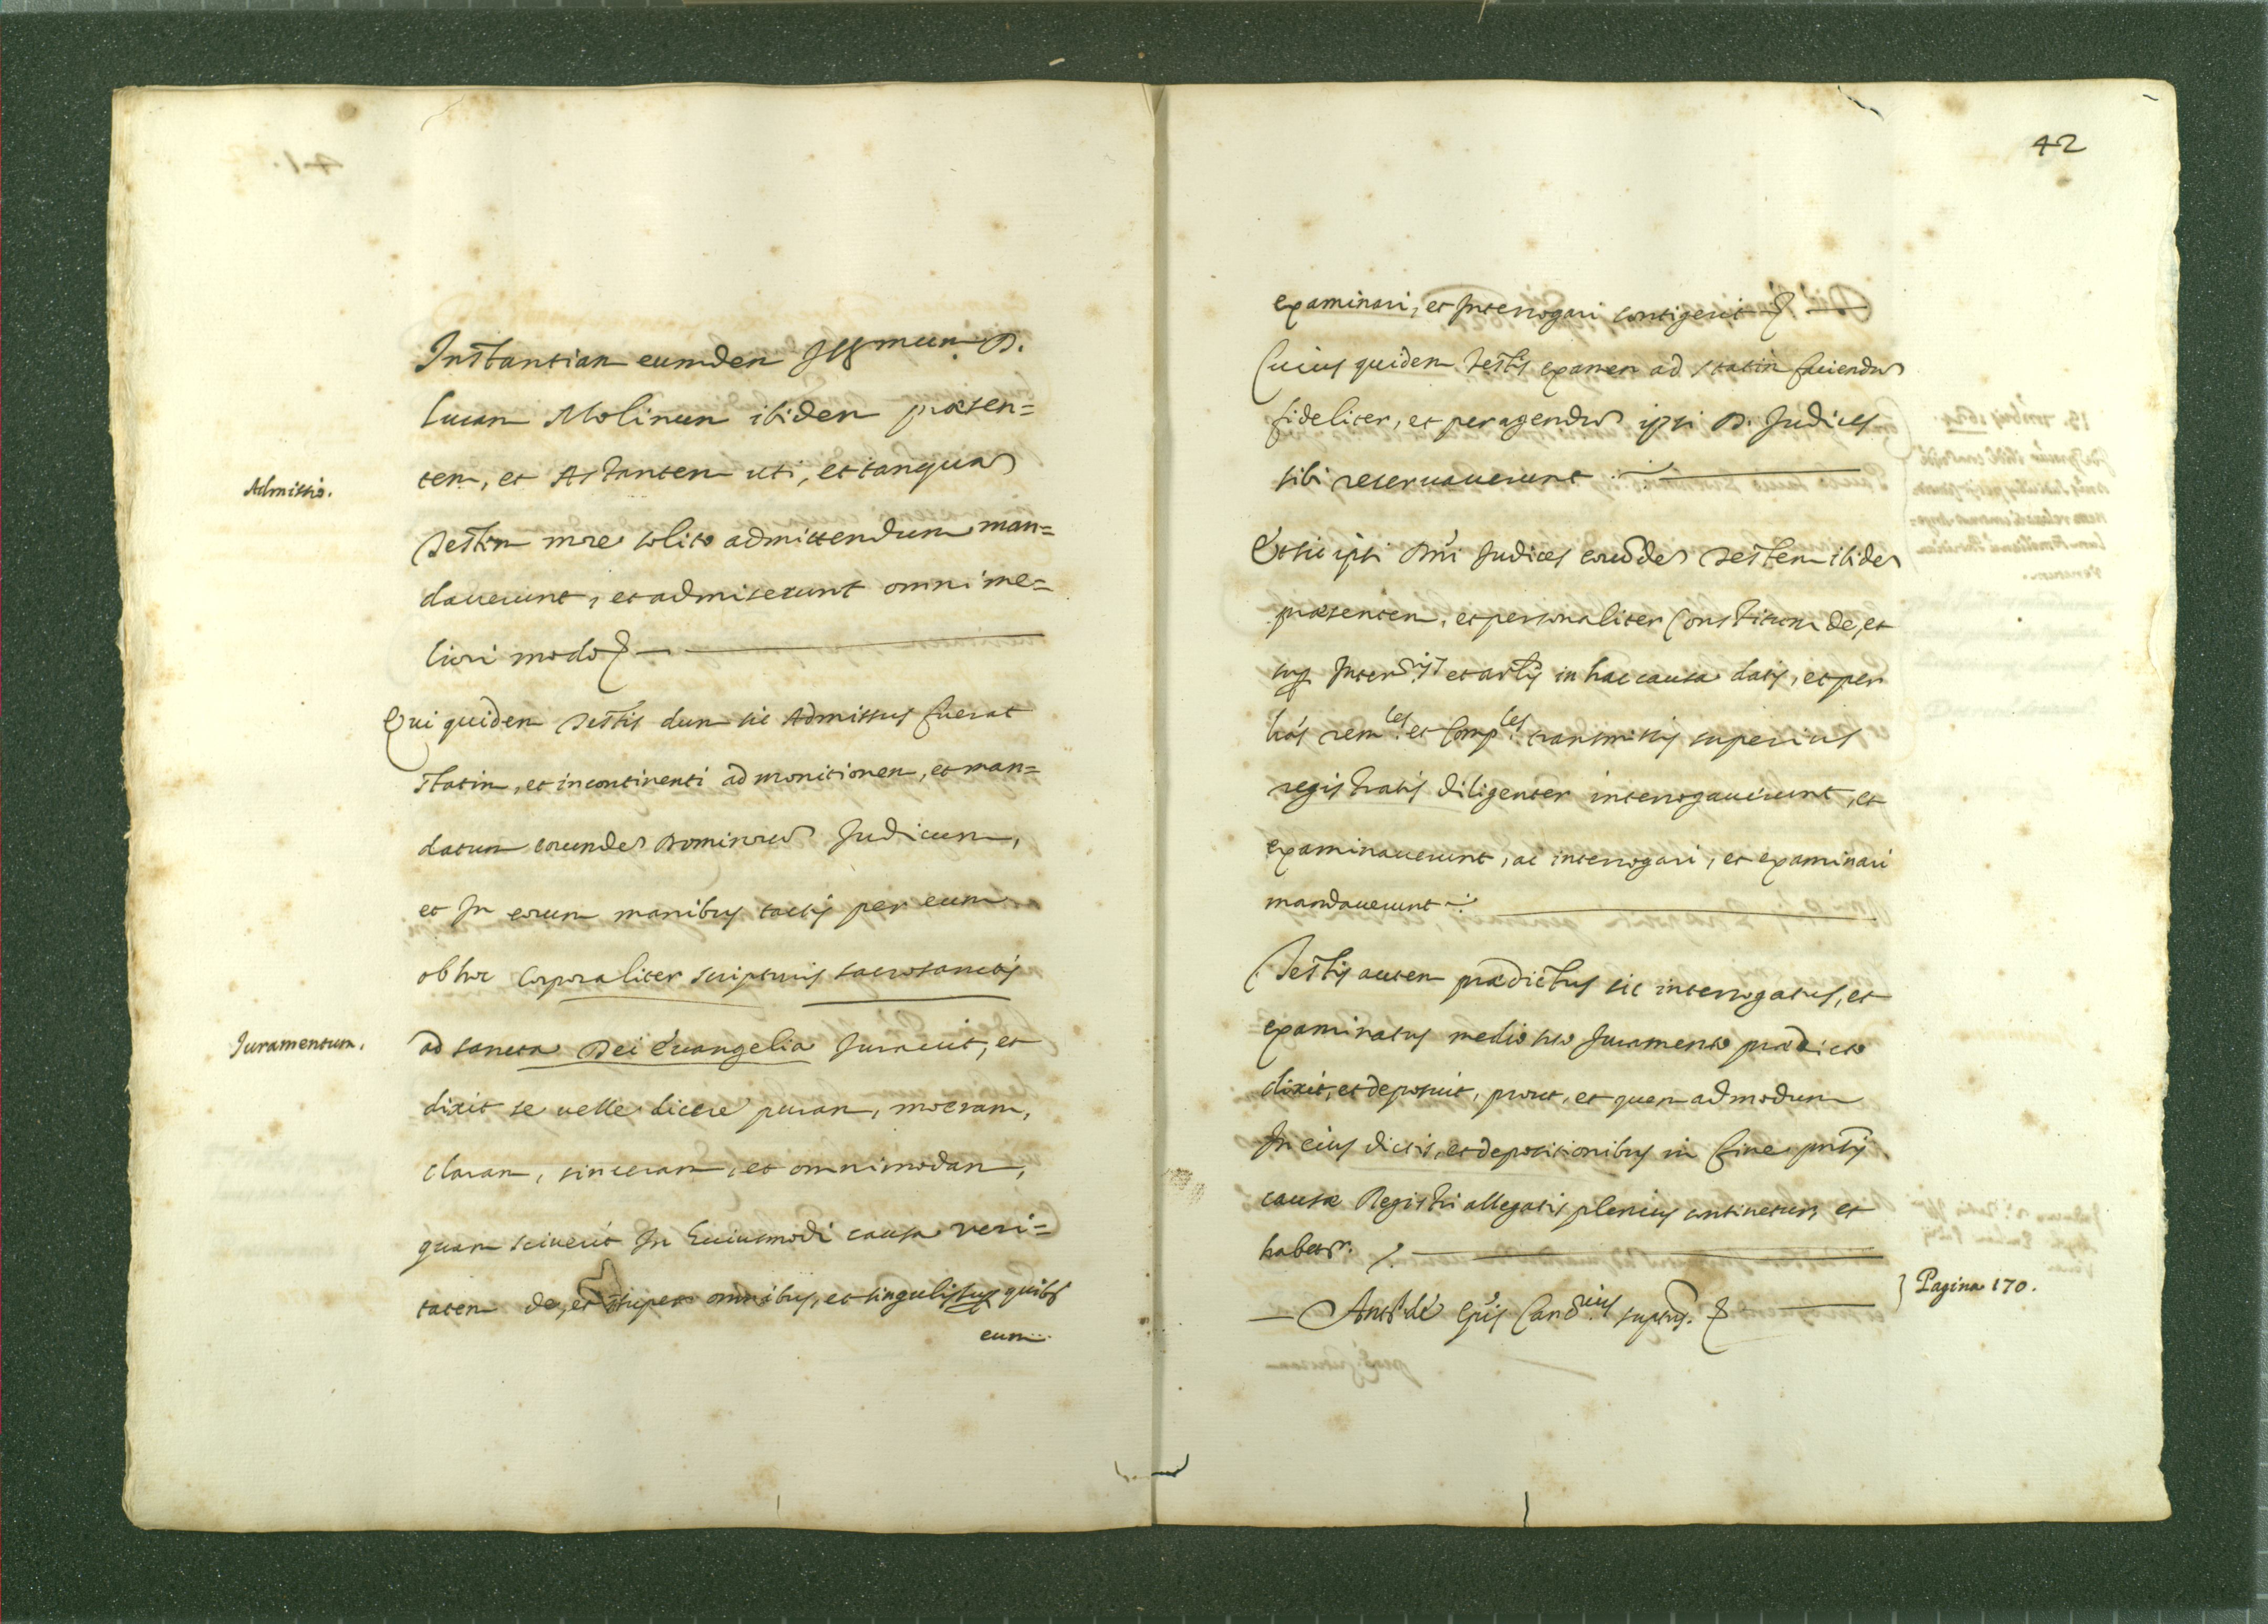 Instantiam eumdem Illmum D.
Lucam Molinum ibidem præsen=
tem, et Astantem uti, et tanquam
Admissio.
Testem more solito admittendum man=
daverunt, et admiserunt omni me=
liori modo
Qui quidem Testis dum sic Admissus fuerat
statim, et incontinenti ad monitionem, et man=
datum eorumdem Dominorum Judicum,
et In eorum manibus tactis per eum
ob hoc corporaliter scripturis sacrosanctis
Juramentum.
ad sancta Dei Evangelia Juravit, et
dixit se velle dicere puram, meram,
claram, sinceram, et omnimodam,
quam sciverit In huiusmodi causa veri=
tatem de, et super omnibus, et singulis sup quibs
eum
42
examinari, et Interrogari contigerit
Cuius quidem Testis examen ad statim faciendum
fideliter, et peragendum ipsi D. Judices
sibi reservaverunt
Et sic ipsi Dni Judices eumdem Testem ibidem
præsentem, et personaliter Constitutum de, et
sup Interriis et artlis in hac causa datis, et per
lras remles et Comples transmissis superius
registratis diligenter interrogaverunt, et
examinaverunt, ac interrogari, et examinari
mandaverunt
Testis autem prædictus sic interrogatus, et
examinatus medio suo Juramento prædicto
dixit, et deposuit, prout, et quem admodum
In eius dictis, et depositionibus in fine pntis
causæ Registri allegatis plenius continetur, et
habetr.
Pagina 170.